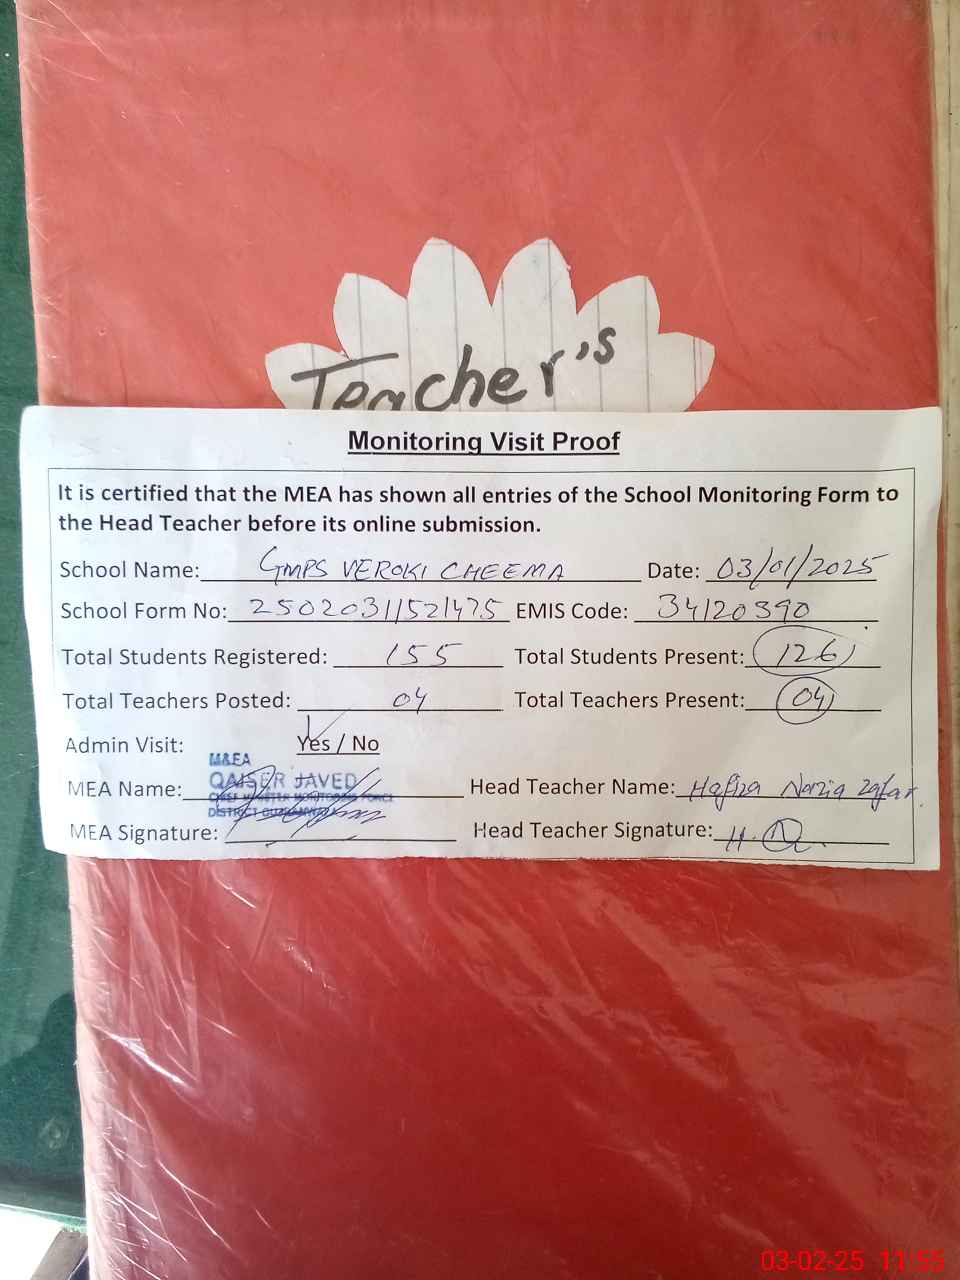 Teacher's
Monitoring Visit Proof
It is certified that the MEA has shown all entries of the School Monitoring Form to
the Head Teacher before its online submission.
School Name: GMPS VEROKI CHEEMA Date: 03/01/2025
School Form No: 25020311521475 EMIS Code: 34120390
Total Students Registered: 155 Total Students Present: 126
Total Teachers Posted: 04 Total Teachers Present: 04
Admin Visit: Yes / No
M&EA
MEA Name: QAISER JAVED Head Teacher Name: Hafiza Nazia Zafar
CHIEF MINISTER MONITORING FORCE
DISTRICT GUJRANWALA
MEA Signature: Head Teacher Signature: H.
03-02-25 11:55